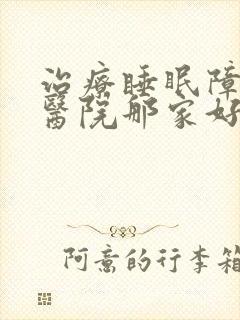 治療睡眠障
醫院那家好
阿意的行李箱